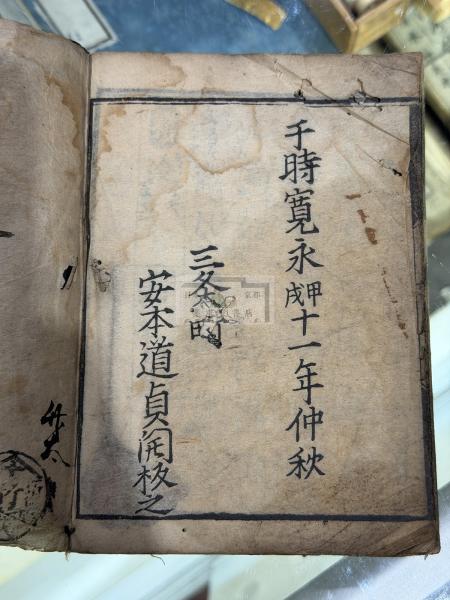 于時寛永甲戌十一年仲秋
三条
安本道貞開板之